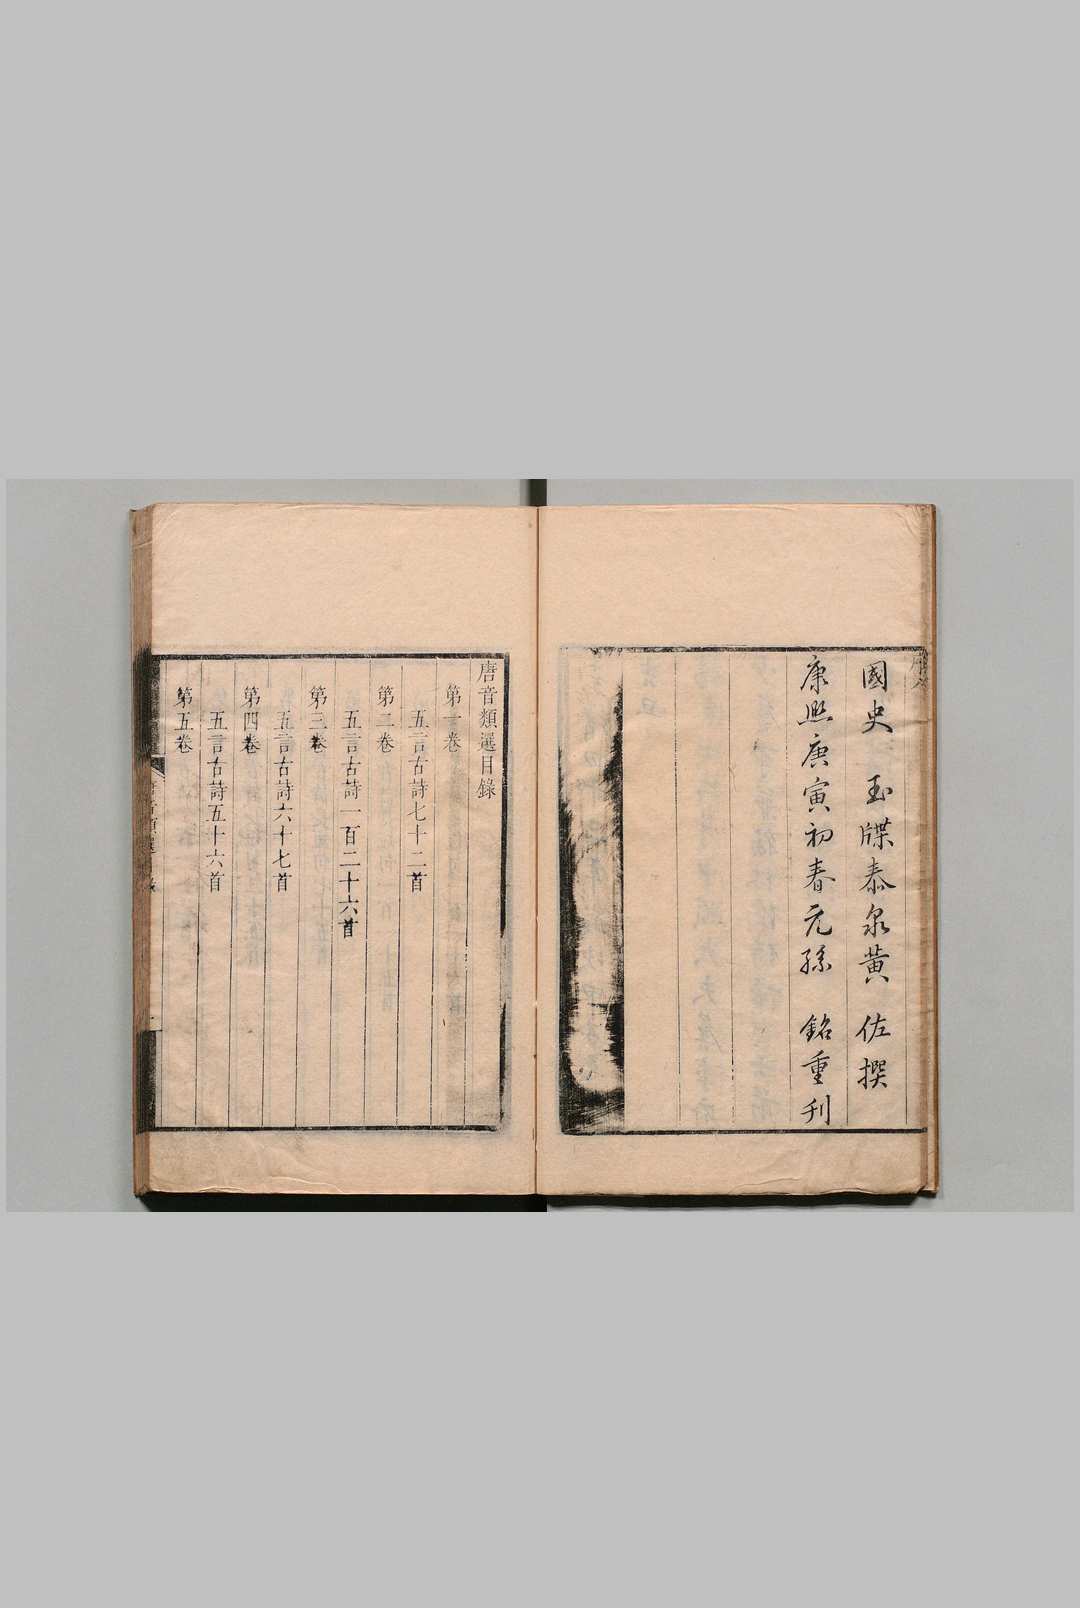 國史　玉牒泰泉黃　佐撰
康熙庚寅初春元孫　銘重刊
唐音類選目錄
第一卷
五言古詩七十二首
第二卷
五言古詩一百二十六首
第三卷
五言古詩六十七首
第四卷
五言古詩五十六首
第五卷